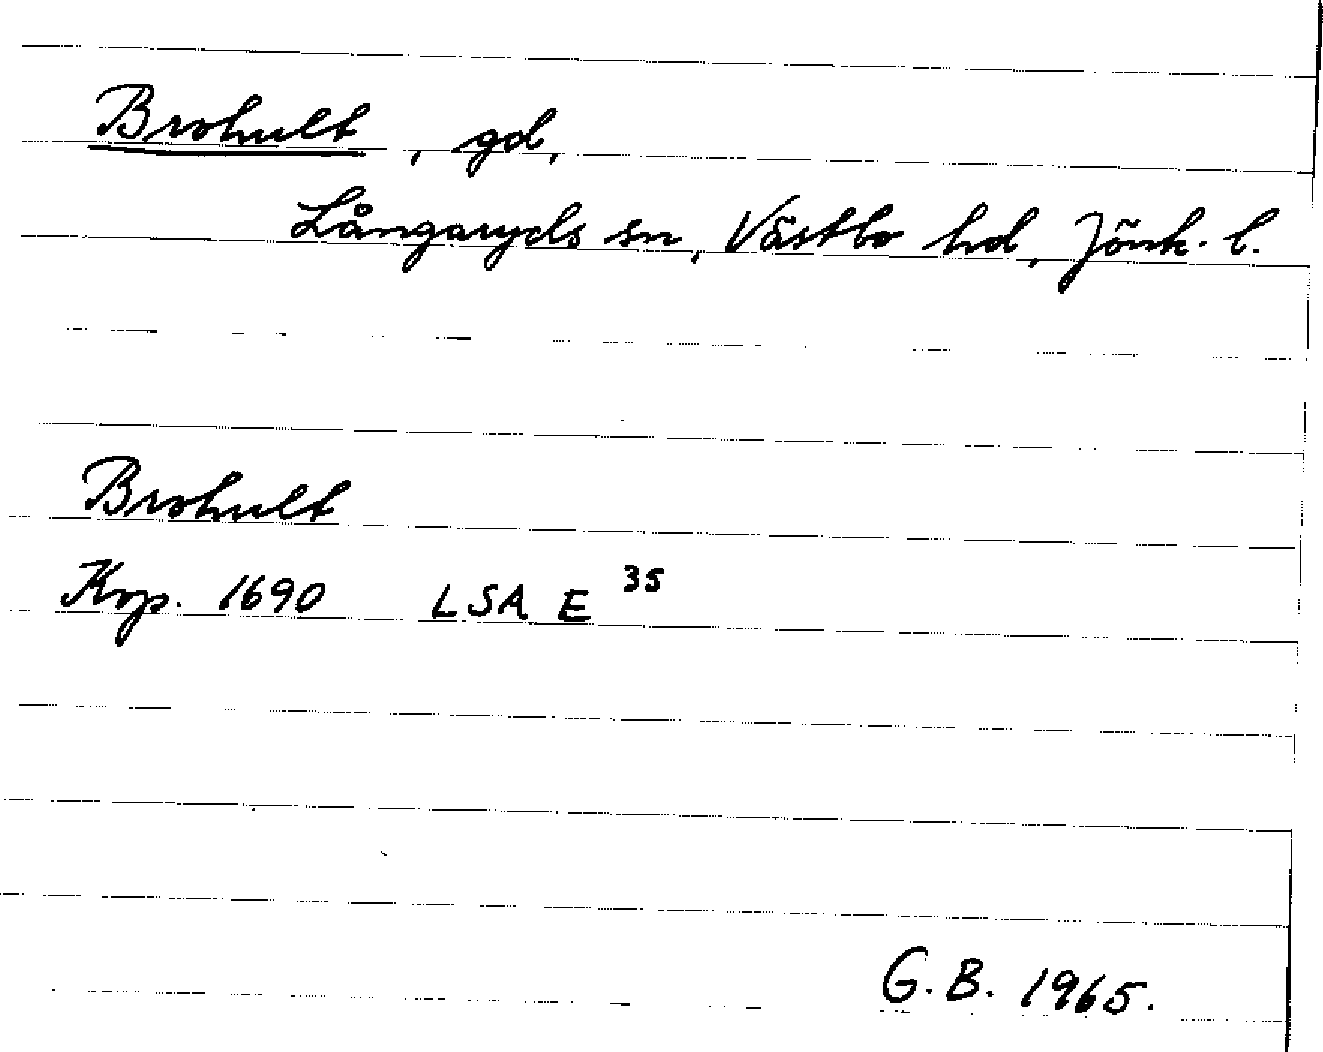 Brohult, gd,
Långaryds sn, Västbo hd, Jönk. l.
Brohult
Kop. 1690 LSA E 35
G.B. 1965.